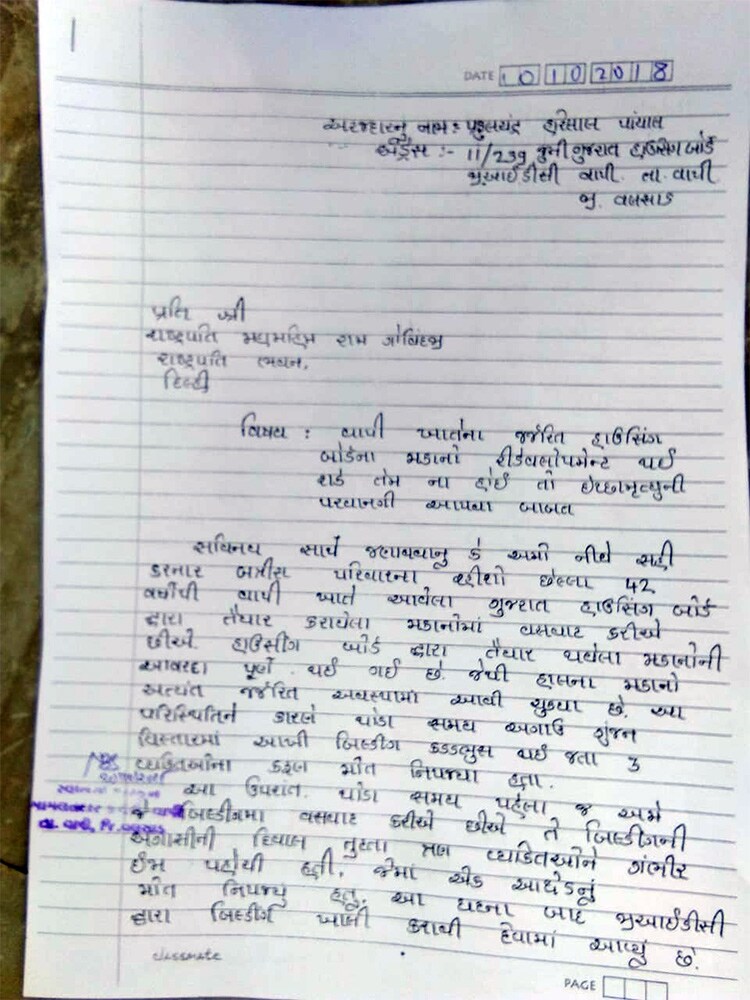 1
DATE 10102018
અરજદારનું નામ : પ્રફુલચંદ્ર હરિલાલ પંચાલ
એડ્રેસ :- 11/239 જુની ગુજરાત હાઉસિંગ બોર્ડ
જીઆઈડીસી વાપી. તા. વાપી
જી. વલસાડ
પ્રતિ શ્રી
રાષ્ટ્રપતિ મહામહિમ રામ ગોવિંદજી
રાષ્ટ્રપતિ ભવન,
દિલ્હી
વિષય : વાપી ખાતેના જર્જરિત હાઉસિંગ
બોર્ડના મકાનો રીડેવલોપમેન્ટ થઈ
શકે તેમ ના હોઈ તો ઈચ્છામૃત્યુની
પરવાનગી આપવા બાબત
સવિનય સાથે જણાવવાનુ કે અમો નીચે સહી
કરનાર બત્રીસ પરિવારના રહીશો છેલ્લા 42
વર્ષોથી વાપી ખાતે આવેલા ગુજરાત હાઉસિંગ બોર્ડ
દ્વારા તૈયાર કરાયેલા મકાનોમાં વસવાટ કરીએ
છીએ. હાઉસીંગ બોર્ડ દ્વારા તૈયાર થયેલા મકાનોની
આવરદા પૂર્ણ થઈ ગઈ છે. જેથી હાલના મકાનો
અત્યંત જર્જરિત અવસ્થામાં આવી ચુક્યા છે. આ
પરિસ્થિતિને કારણે થોડા સમય અગાઉ ગુંજન
વિસ્તારમાં આખી બિલ્ડીંગ કડડભુસ થઈ જતા 3
વ્યકિતઓના કરૂણ મોત નિપજ્યા હતા.
આ ઉપરાંત. થોડા સમય પહેલા જ અમે
જે બિલ્ડીંગમા વસવાટ કરીએ છીએ તે બિલ્ડીંગની
અગાસીની દિવાલ તુટતા ત્રણ વ્યકિતઓને ગંભીર
ઈજા પહોચી હતી. જેમાં એક આધેડનું
મોત નિપજ્યુ હતુ. આ ઘટના બાદ જીઆઈડીસી
દ્વારા બિલ્ડીંગ ખાલી કરાવી દેવામાં આવ્યું છે.
તા. વાપી, જિ. વલસાડ
classmate
PAGE